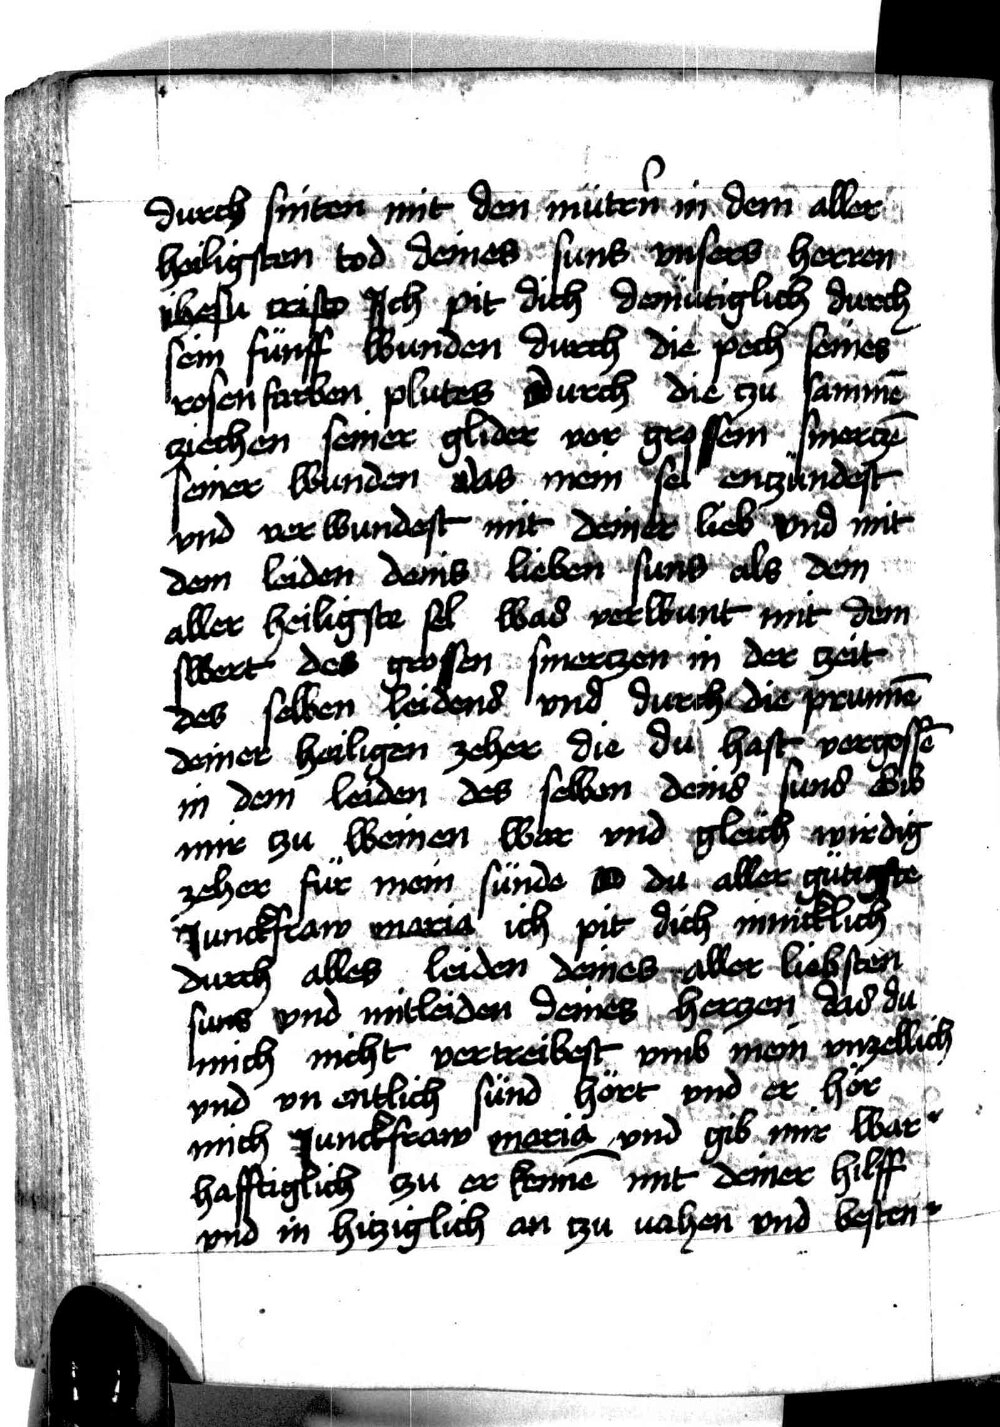 durch sniten mit den mütern in dem aller
heiligsten tod deines suns vnsers herren
ihesu cristo Ich pit dich demütiglich durch
sein fünff wunden durch die pech seines
rosenfarben plutes Durch die zu samme͂
ziechen seiner glider vor grossem smercze͂
seiner wunden das mein sel enczündest
vnd verwundest mit deiner lieb vnd mit
dem leiden deins lieben suns als dein
aller heiligste sel was verwunt mit dem
swert des grossen smerczen in der czeit
des selben leidens vnd durch die prunne͂
deiner heiligen zeher die du hast vergosse͂
in dem leiden des selben deins suns Gib
mir zu weinen war vnd gleich wirdig
zeher für mein sünde O du aller gütigste
Junckfraw maria ich pit dich innicklich
durch alles leiden deines aller liebsten
suns vnd mitleiden deines herczen das du
mich nicht vertreibest vmb mein vnzellich
vnd vn entlich sünd hört vnd er hör
mich Junckfraw maria vnd gib mir war-
hafftiglich zu er kenne͂ mit deiner hilff
vnd in hiziglich an zu nahen vnd besten-